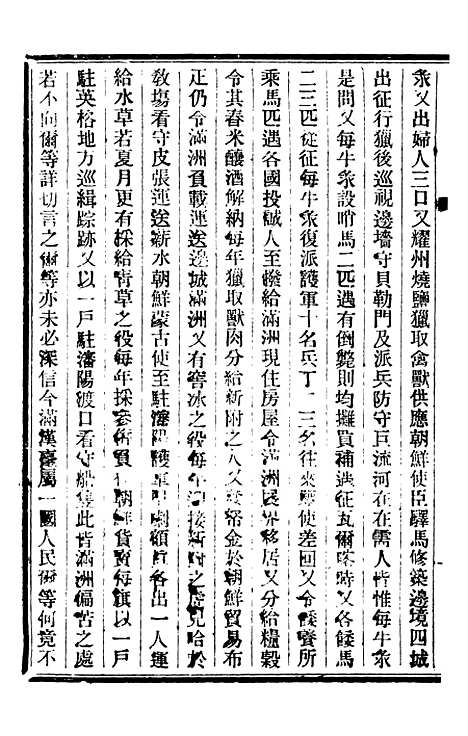 汞又出婦人三口又耀州燒鹽獵取禽獸供應朝鮮使臣驛馬修築邊境四城
出征行獵後巡視邊墻守貝勒門及派兵防守巨流河在在需人皆惟每牛汞
是問又每牛汞設哨馬二匹遇有倒斃則均攤買補遇征瓦爾喀時又各餧馬
二三匹從征每牛汞復派護軍十名兵丁二三名往來使差回又令餧養所
乘馬匹遇各國投誠人至撥給滿洲現住房屋令滿洲民界移居又分給糧穀
令其舂米釀酒解納每年獵取獸肉分給新附之人又發帑金於朝鮮貿易布
疋仍令滿洲負載運送邊城滿洲又有窖冰之役每年迎接新附之虎兒哈於
敎場看守皮張運送薪水朝鮮蒙古使至駐瀋陽護軍甲喇額眞各出一人運
給水草若夏月更有採給靑草之役每年採參幷負往朝鮮貨賣每旗以一戶
駐英格地方巡緝踪跡又以一戶駐瀋陽渡口看守船隻此皆滿洲偏苦之處
若不向爾等詳切言之爾等亦未必深信今滿漢屬一國人民爾等何竟不